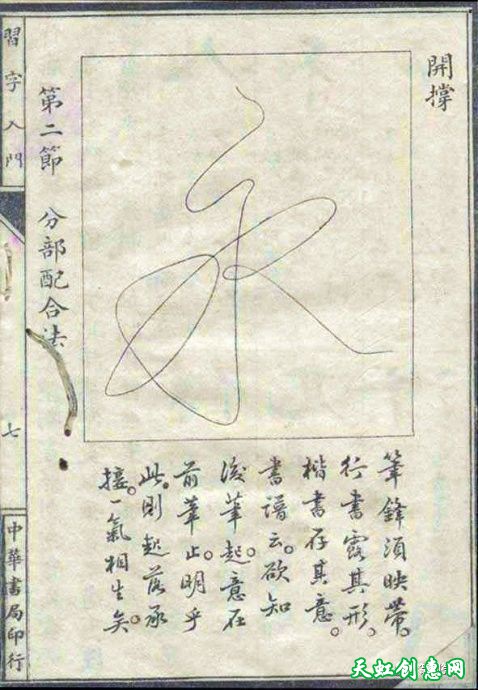 開撐
永
筆鋒須映帶。
行書露其形。
楷書存其意。
書譜云。欲知
後筆起。意在
前筆止。明乎
此。則起落承
接。一氣相生矣。
第二節 分部配合法
習字入門
七
中華書局印行
天虹创意网